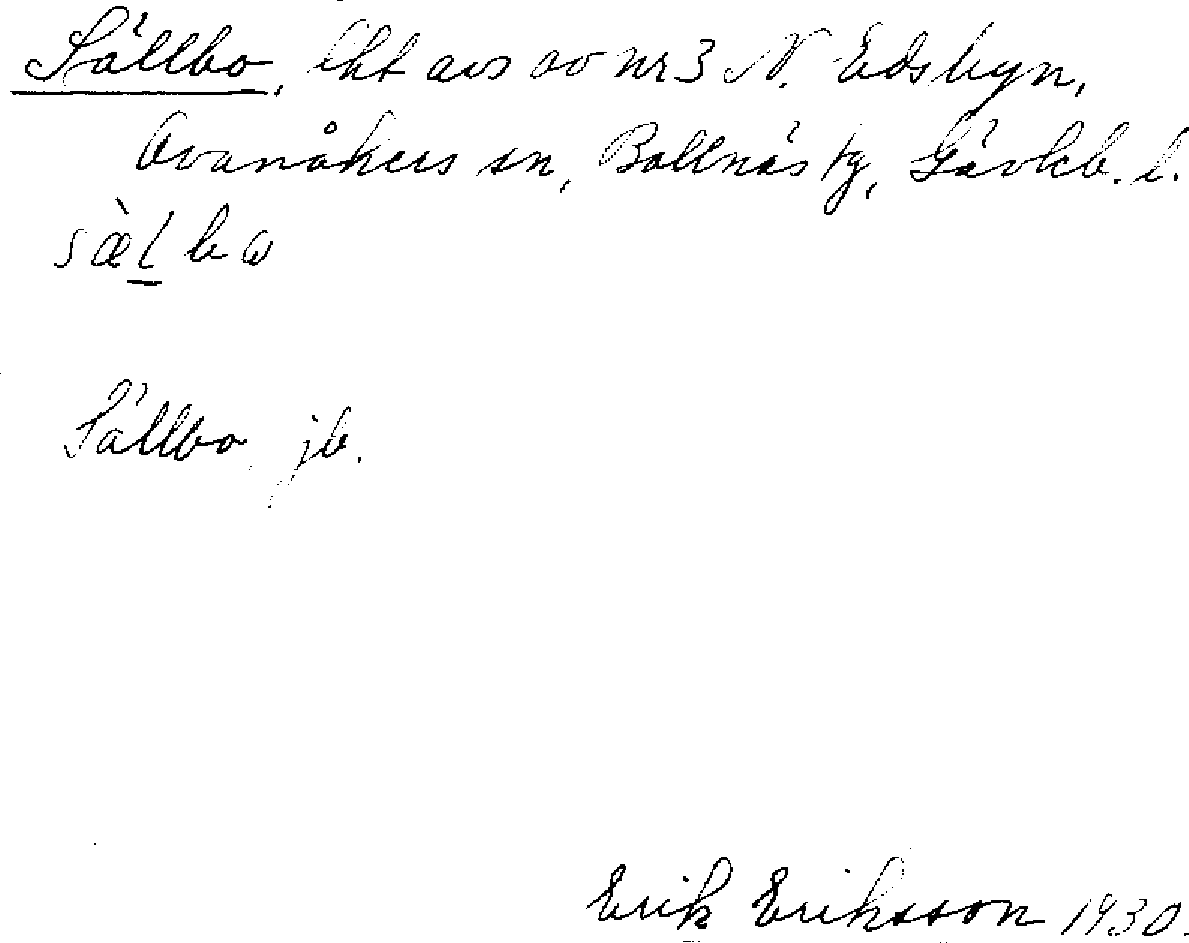 Sällbo, lht avs av nr 3 N. Edsbyn,
Ovanåkers sn, Bollnäs tg, Gävleb. l.
sæ̀l̲bω
Sällbo jb.
Erik Eriksson 1930.